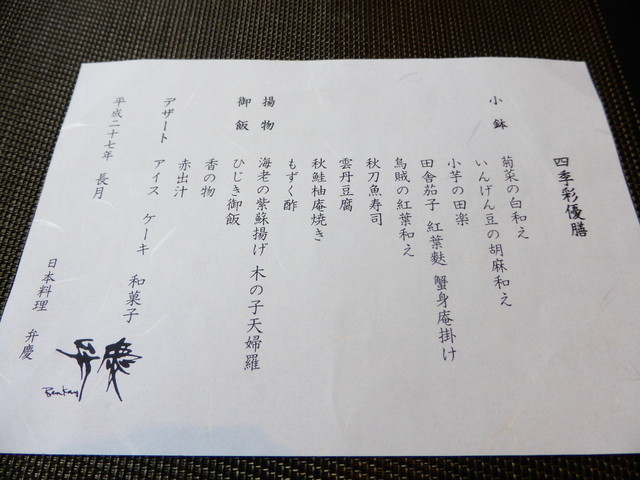 四季彩優膳
小鉢
菊菜の白和え
いんげん豆の胡麻和え
小芋の田楽
田舎茄子 紅葉麩 蟹身庵掛け
烏賊の紅葉和え
秋刀魚寿司
雲丹豆腐
秋鮭柚庵焼き
もずく酢
揚物 海老の紫蘇揚げ 木の子天婦羅
御飯 ひじき御飯
香の物
赤出汁
デザート アイス ケーキ 和菓子
平成二十七年 長月
日本料理 弁慶
弁慶
Benkay